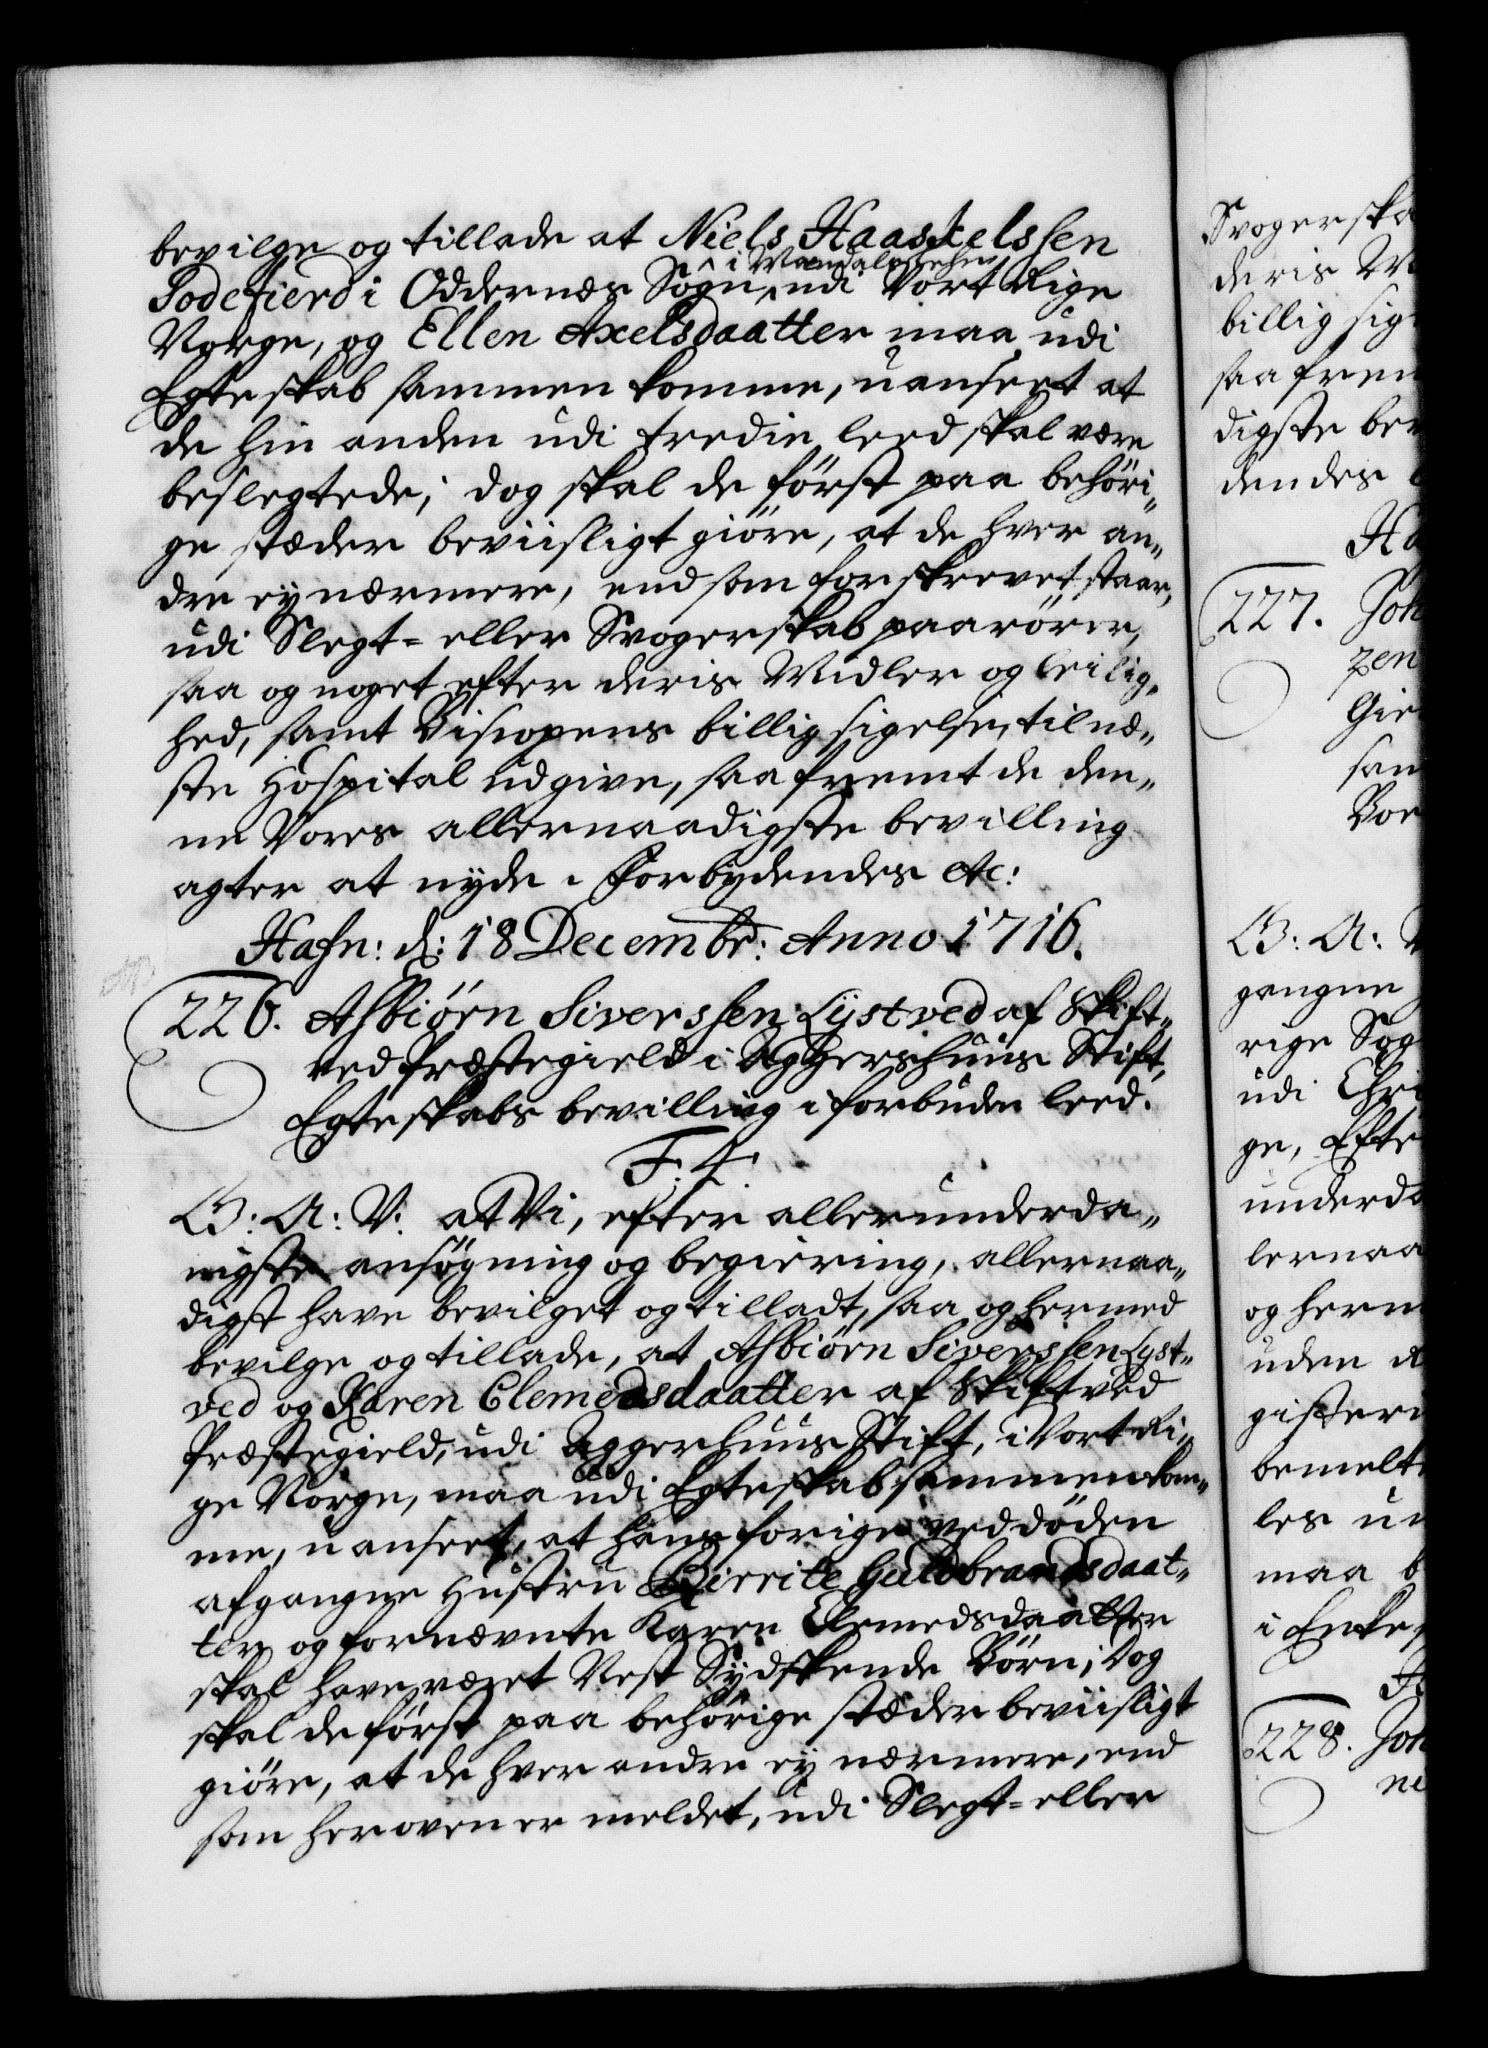 bevilge og tillade at Niels Haaskelssen
Todefierd i Oddernæs Sogn, udi Vort Rige
i Mandals Lehn
Norge, og Ellen Axelsdaatter maa udi
Egteskab sammen komme, uanseet at
de hin anden udi tredie leed skal være
beslegtede; dog skal de först paa behöri„
ge stæder beviisligt giöre, at de hver an„
dre ey nærmere, end som forskrevet staar,
udi Slegt- eller Svogerskab paarörer,
saa og noget efter deris Midler og leilig„
hed, samt Biscopens billigsigelse, til næ„
ste Hospital udgive, saafremt de den„
ne Vores allernaadigste bevilling
agter at nyde. Forbydendes etc:
Hafn: d: 18 Decembr: Anno 1716.
226. Asbiörn Siverssen Lystved af Skift„
ved Præstegield i Aggershuus Stift,
Egteskabs bevilling i forbuden leed.
F. 4.
G: A: V: at Vi, efter allerunderda„
nigste ansögning og begiering, allernaa„
digst have bevilget og tilladt, saa og hermed
bevilge og tillade, at Asbiörn Siverssen Lyst„
ved og Karen Clemedsdaatter af Skiftved
Præstegield, udi Aggerhuus Stift, i Vort Ri„
ge Norge, maa udi Egteskab sammenkom„
me, uanseet, at hans forige ved döden
afgangne Hustru Birrite Guldbrandsdaat„
ter og fornævnte Karen Clemedsdaatter
skal have været Nest Sydskende Börn; Dog
skal de först paa behörige stæder beviisligt
giöre, at de hver andre ey nærmere, end
som heroven er meldet, udi Slegt- eller
Svogerska
deris Mi
billigsig
saafrem
digste bev
dendes
Ha
227. Joh
pen
Gie
sam
Bor
G: A: V
gangne
rige Sog
udi Chri
ge, Efte
underda
lernaa
og herm
uden
gistere
bemelt
les un
maa b
i Enke
228. Joh
ne